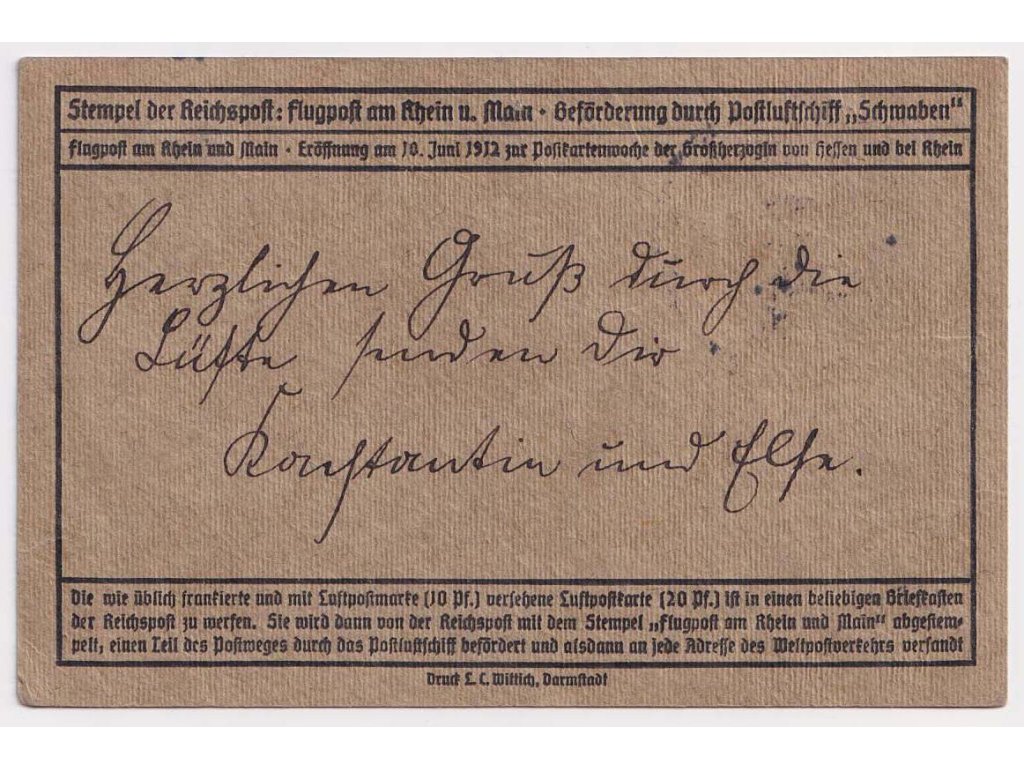 Stempel der Reichspost: Flugpost am Rhein u. Main · Beförderung durch Postluftschiff „Schwaben"
Flugpost am Rhein und Main · Eröffnung am 10. Juni 1912 zur Postkartenwoche der Großherzogin von Hessen und bei Rhein
Herzlichen Gruß durch die
Lüfte senden Dir
Konstantin und Else.
Die wie üblich frankierte und mit Luftpostmarke (10 Pf.) versehene Luftpostkarte (20 Pf.) ist in einen beliebigen Briefkasten
der Reichspost zu werfen. Sie wird dann von der Reichspost mit dem Stempel „Flugpost am Rhein und Main" abgestem-
pelt, einen Teil des Postweges durch das Postluftschiff befördert und alsdann an jede Adresse des Weltpostverkehrs versandt
Druck L. C. Wittich, Darmstadt